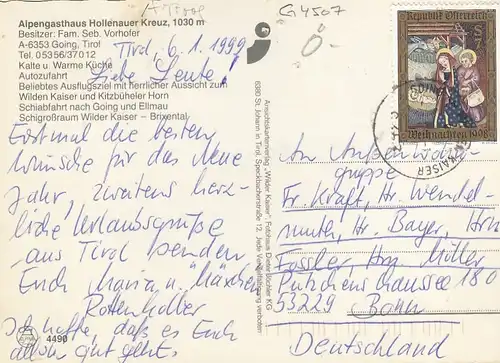 Alpengasthaus Hollenauer Kreuz, 1030 m
Besitzer: Fam. Seb. Vorhofer
A-6353 Going, Tirol
Tel. 05356/37012
Kalte u. Warme Küche
Autozufahrt
Beliebtes Ausflugsziel mit herrlicher Aussicht zum
Wilden Kaiser und Kitzbüheler Horn
Schiabfahrt nach Going und Ellmau
Schigroßraum Wilder Kaiser – Brixental
Tirol, 6.1.1999
Liebe Leute!
Erstmal die besten
Wünsche für das Neue
Jahr, zweitens herz-
liche Urlaubsgrüße
aus Tirol senden
Euch Maria u.
Rottenhalter
Ich hoffe, daß es Euch
allen gut geht.
4490
Ansichtskartenverlag „Wilder Kaiser", Fotohaus Dieter Blücher KG
6380 St. Johann in Tirol, Speckbacherstraße 12. Jede Vervielfältigung verboten!
G4507
Republik Österreich
S 7
Weihnachten 1998
KAISER
An Außenwohn-
gruppe
Fr. Kraft, Hr. Wendel-
muter, Hr. Bayer, Hrn
Fassler, Hrn Müller
Pützchens Chaussee 180
53229 Bonn
Deutschland